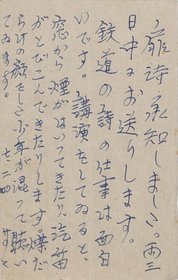 扉詩承知しました。両三
日中にお送りします。
鉄道の詩の仕事は面白
いです。講演をしてゐると、
窓から煙がはいつてきたり、汽笛
がとびこんできたりします。煤だ
らけの顔をした少年が混つて聴い
てゐます。
七、二四